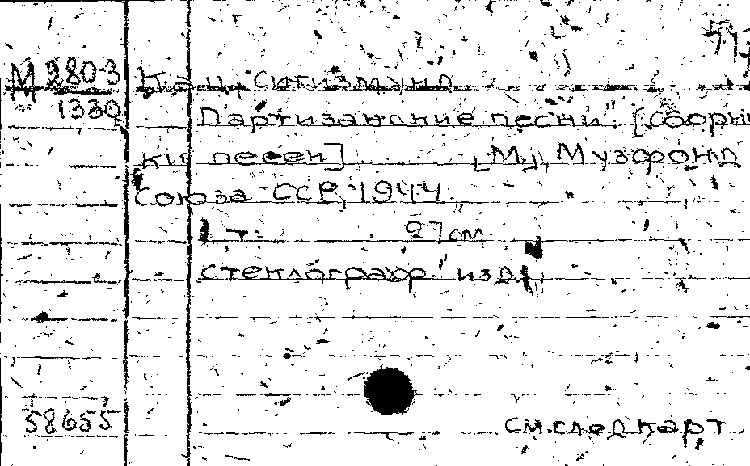 М 280-3 Кац, Сигизмунд
1330 Партизанские песни. [Сборни
ки песен] [М.], Музфонд
Союза ССР, 1944.
1 т. 27 см
стеклограф. изд.
58655 см. след карт